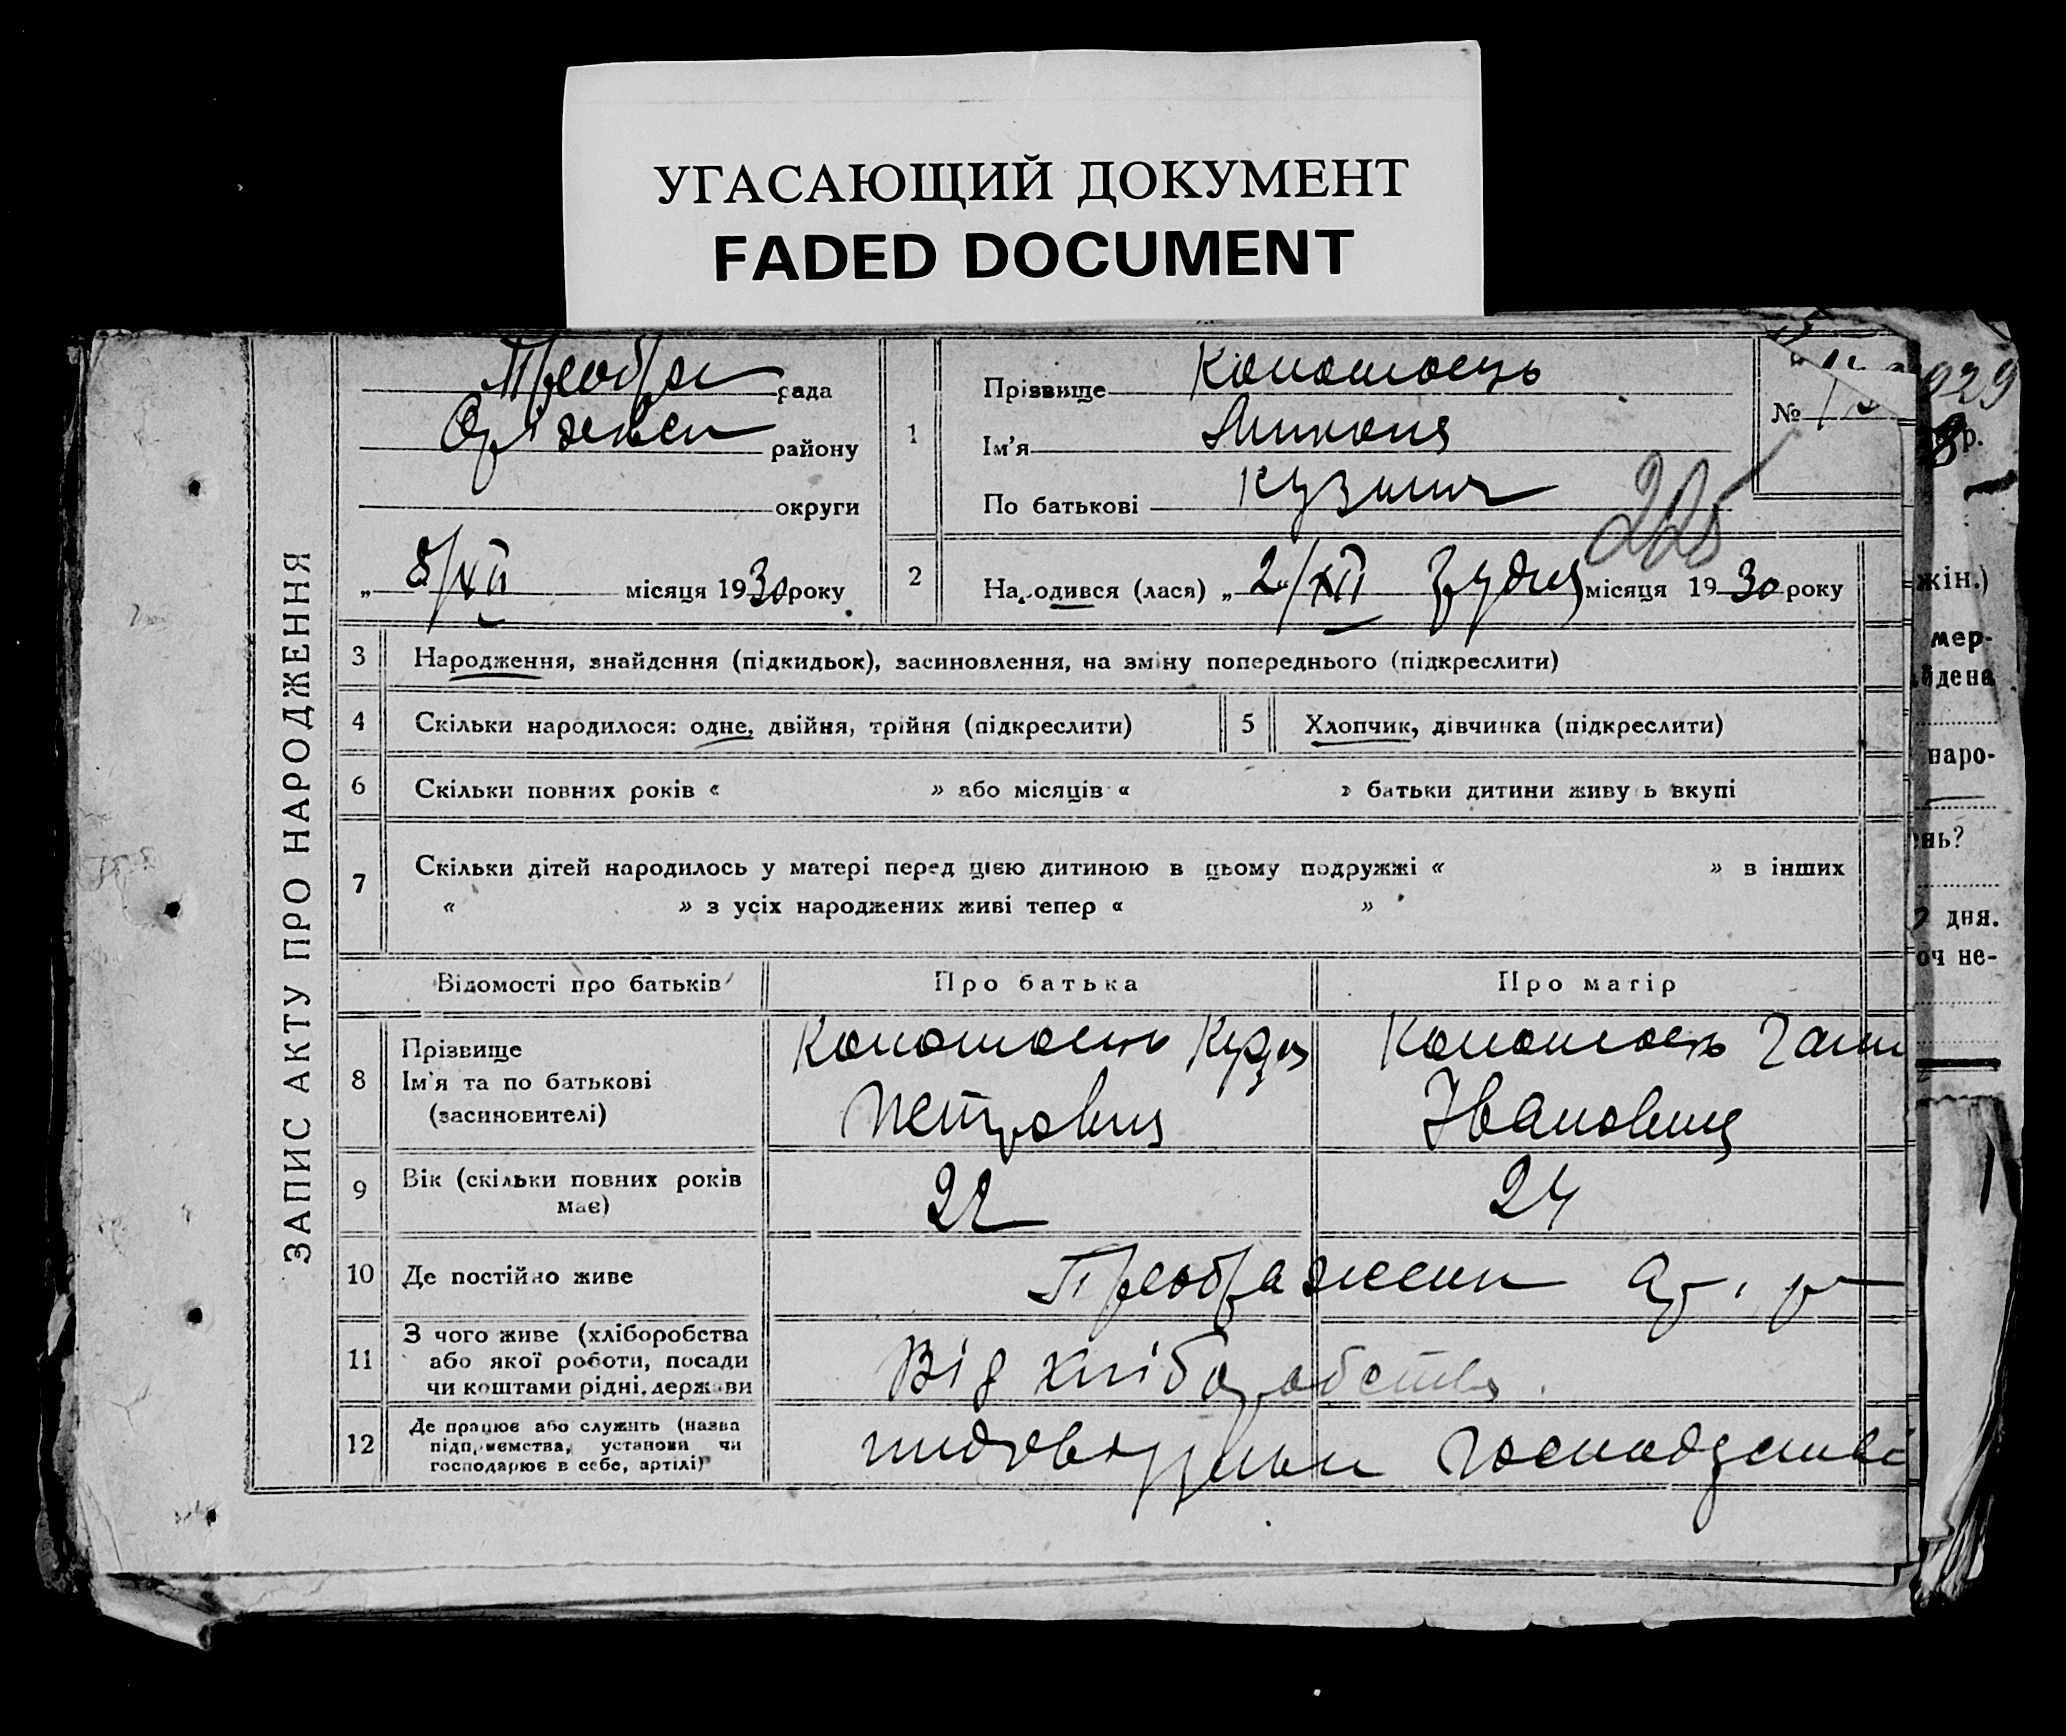 УГАСАЮЩИЙ ДОКУМЕНТ
FADED DOCUMENT
ЗАПИС АКТУ ПРО НАРОДЖЕННЯ
Преобра рада
району
округи
„ 8/XII місяця 1930 року
1
Прізвище
Ім'я Микола
По батькові Кузьмич
№
225
929
2 Народився (лася) „ 2/XII грудня місяця 1930 року
3 Народження, знайдення (підкидьок), засиновлення, на зміну попереднього (підкреслити)
4 Скільки народилося: одне, двійня, трійня (підкреслити) 5 Хлопчик, дівчинка (підкреслити)
6 Скільки повних років « » або місяців « » батьки дитини живуть вкупі
7 Скільки дітей народилось у матері перед цією дитиною в цьому подружжі « » в інших
« » з усіх народжених живі тепер « »
Відомості про батьків Про батька Про матір
8 Прізвище
Ім'я та по батькові
(засиновителі)
Петрович Івановна
9 Вік (скільки повних років має) 22 24
10 Де постійно живе Преображенк
11 З чого живе (хліборобства
або якої роботи, посади
чи коштами рідні, держави
Від хліборобства
12 Де працює або служить (назва
підприємства, установи чи
господарює в себе, артілі)
господарстві
жін.)
мер-
йдена
наро-
ень?
дня.
оч не-